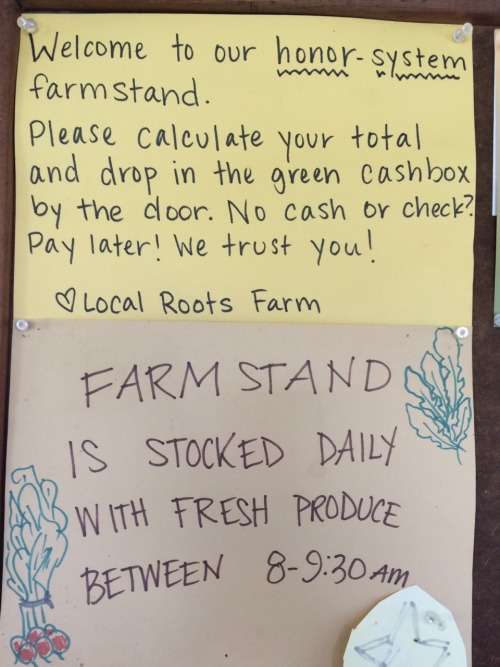 Welcome to our honor-system
farmstand.
Please calculate your total
and drop in the green cashbox
by the door. No cash or check?
Pay later! We trust you!
♡ Local Roots Farm
FARM STAND
IS STOCKED DAILY
WITH FRESH PRODUCE
BETWEEN 8-9:30 AM